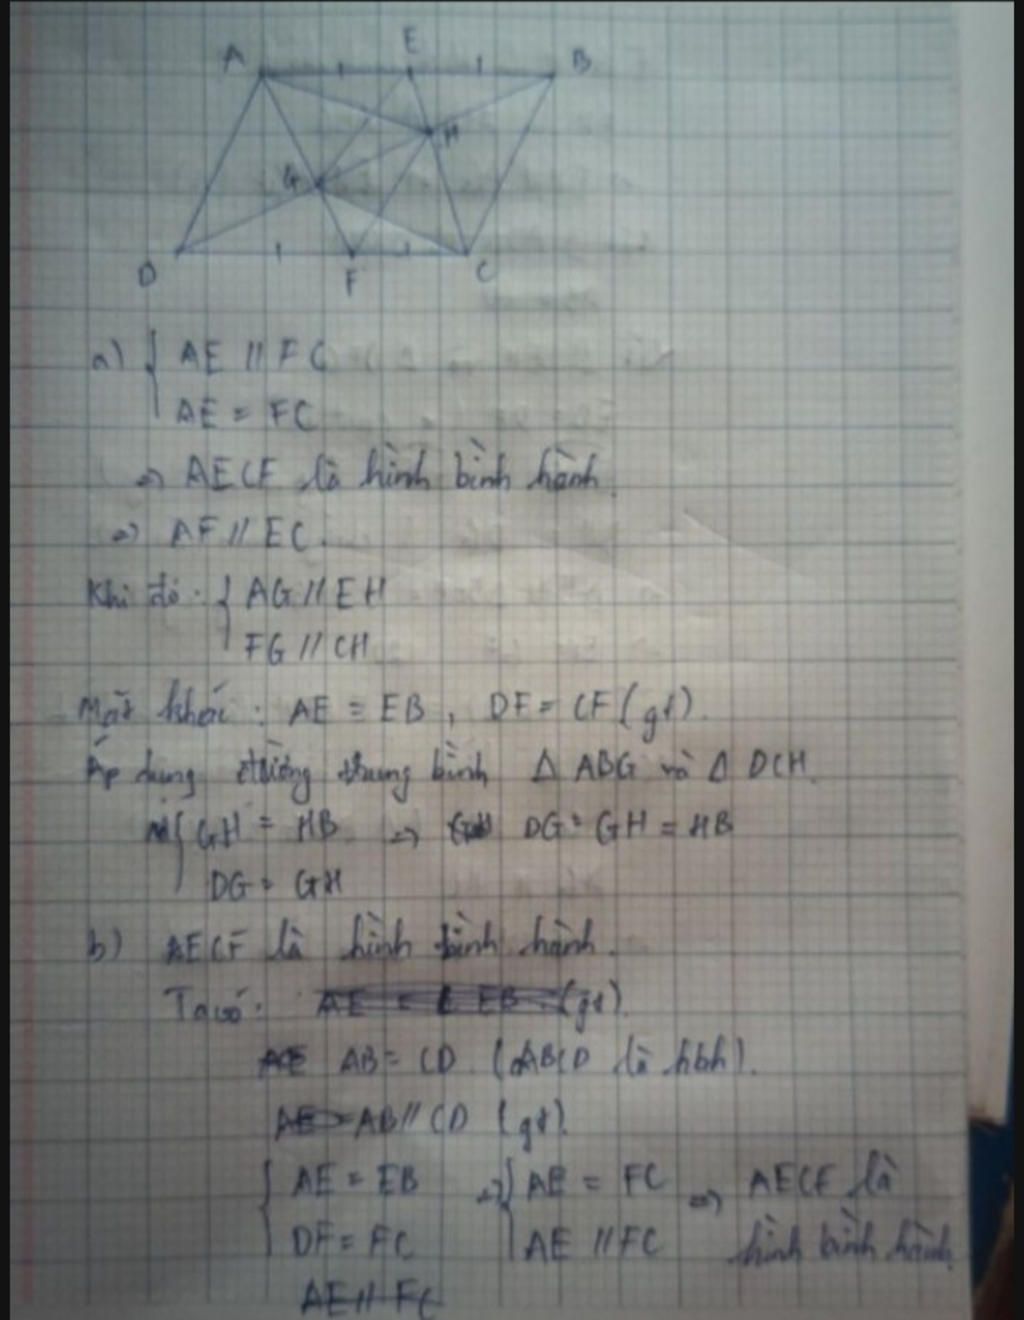 A E B
H
G
D F C
a) { AE // FC
AE = FC
=> AECF là hình bình hành.
=> AF // EC.
Khi đó: { AG // EH
FG // CH
Mặt khác: AE = EB, DF = CF (gt).
Áp dụng đường trung bình Δ ABG và Δ DCH.
{ GH = HB => DG = GH = HB
DG = GH
b) AECF là hình bình hành.
Ta có: AE = EB (gt).
AB = CD (ABCD là hbh).
AB // CD (gt).
{ AE = EB => { AE = FC => AECF là
DF = FC AE // FC hình bình hành.
AE // FC